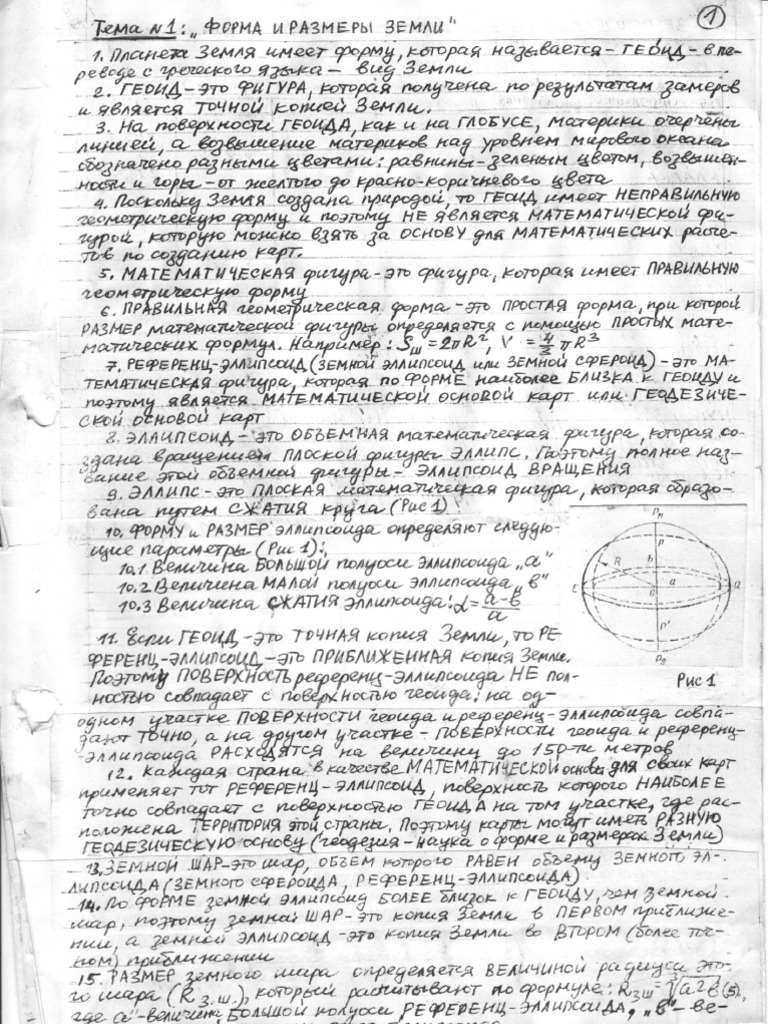 Тема №1: „ФОРМА И РАЗМЕРЫ ЗЕМЛИ"
1
1. Планета Земля имеет форму, которая называется – ГЕОИД – в пе-
реводе с греческого языка – вид Земли
2. ГЕОИД – это ФИГУРА, которая получена по результатам замеров
и является ТОЧНОЙ копией Земли.
3. На поверхности ГЕОИДА, как и на ГЛОБУСЕ, материки очерчены
линией, а возвышение материков над уровнем мирового океана
обозначено разными цветами: равнины – зеленым цветом, возвышен-
ности и горы – от желтого до красно-коричневого цвета
4. Поскольку Земля создана природой, то ГЕОИД имеет НЕПРАВИЛЬНУЮ
геометрическую форму и поэтому НЕ является МАТЕМАТИЧЕСКОЙ фи-
гурой, которую можно взять за ОСНОВУ для МАТЕМАТИЧЕСКИХ расче-
тов по созданию карт.
5. МАТЕМАТИЧЕСКАЯ фигура – это фигура, которая имеет ПРАВИЛЬНУЮ
геометрическую форму
6. ПРАВИЛЬНАЯ геометрическая форма – это ПРОСТАЯ форма, при которой
РАЗМЕР математической фигуры определяется с помощью ПРОСТЫХ мате-
матических формул. Например: Sш = 2πR², V = 4/3 πR³
7. РЕФЕРЕНЦ-ЭЛЛИПСОИД (ЗЕМНОЙ ЭЛЛИПСОИД или ЗЕМНОЙ СФЕРОИД) – это МА-
ТЕМАТИЧЕСКАЯ фигура, которая по ФОРМЕ наиболее БЛИЗКА к ГЕОИДУ и
поэтому является МАТЕМАТИЧЕСКОЙ основой карт или ГЕОДЕЗИЧЕ-
СКОЙ основой карт
8. ЭЛЛИПСОИД – это ОБЪЕМНАЯ математическая фигура, которая со-
здана вращением ПЛОСКОЙ фигуры ЭЛЛИПС. Поэтому полное наз-
вание этой объемной фигуры – ЭЛЛИПСОИД ВРАЩЕНИЯ
9. ЭЛЛИПС – это ПЛОСКАЯ математическая фигура, которая образо-
вана путем СЖАТИЯ круга (Рис 1)
10. ФОРМУ и РАЗМЕР эллипсоида определяют следую-
щие параметры (Рис 1):
10.1 Величина БОЛЬШОЙ полуоси эллипсоида „а"
10.2 Величина МАЛОЙ полуоси эллипсоида „в"
10.3 Величина СЖАТИЯ эллипсоида: α = (a-в)/a
R
a
E
Q
Рис 1
11. Если ГЕОИД – это ТОЧНАЯ копия Земли, то РЕ
ФЕРЕНЦ-ЭЛЛИПСОИД – это ПРИБЛИЖЕННАЯ копия Земли.
Поэтому ПОВЕРХНОСТЬ референц-эллипсоида НЕ пол-
ностью совпадает с поверхностью геоида: на од-
одном участке ПОВЕРХНОСТИ геоида и референц-эллипсоида совпа-
дают ТОЧНО, а на другом участке – ПОВЕРХНОСТИ геоида и референц-
-эллипсоида РАСХОДЯТСЯ на величину до 150-ти метров
12. Каждая страна в качестве МАТЕМАТИЧЕСКОЙ основы для своих карт
применяет тот РЕФЕРЕНЦ-ЭЛЛИПСОИД, поверхность которого НАИБОЛЕЕ
точно совпадает с поверхностью ГЕОИДА на том участке, где рас-
положена ТЕРРИТОРИЯ этой страны. Поэтому карты могут иметь РАЗНУЮ
ГЕОДЕЗИЧЕСКУЮ основу (геодезия – наука о форме и размерах Земли)
13. ЗЕМНОЙ ШАР – это шар, ОБЪЕМ которого РАВЕН объему ЗЕМНОГО ЭЛ-
ЛИПСОИДА (ЗЕМНОГО СФЕРОИДА, РЕФЕРЕНЦ-ЭЛЛИПСОИДА)
14. По ФОРМЕ земной эллипсоид БОЛЕЕ близок к ГЕОИДУ, чем земной
шар, поэтому земной ШАР – это копия Земли в ПЕРВОМ приближе-
нии, а земной ЭЛЛИПСОИД – это копия Земли во ВТОРОМ (более точ-
ном) приближении
15. РАЗМЕР земного шара определяется ВЕЛИЧИНОЙ радиуса это-
го шара (R з.ш.), который расчитывают по формуле: Rзш = ³√a²в (5),
где „а"-величина БОЛЬШОЙ полуоси РЕФЕРЕНЦ-ЭЛЛИПСОИДА, „в" – ве-